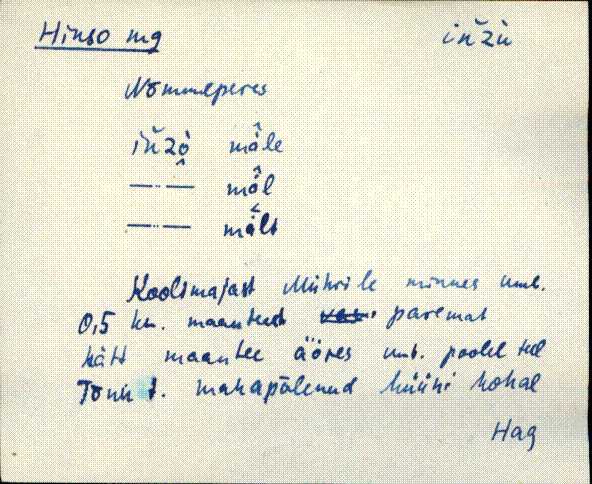 Hinso mg iňzù
Nõmmeperes
iňzò mäle
—·— mäl
—·— mält
Koolimajast Mührile minnes umb.
0,5 km. maanteest paremat
kätt maantee ääres umb. poolel teel
Tõnu t. mahapõlenud küüni kohal
Hag